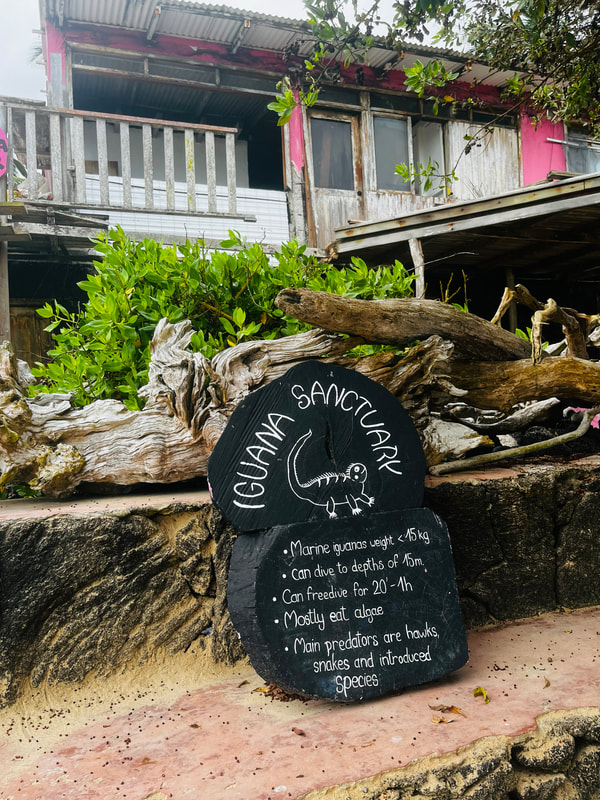 IGUANA SANCTUARY
• Marine iguanas weight <15 kg
• can dive to depths of 15m.
• Can freedive for 20'-1h
• Mostly eat algae
• Main predators are hawks,
snakes and introduced
species